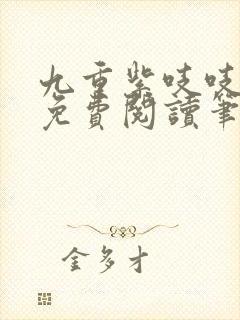 九重紫吱吱
免費閱讀筆
金多才